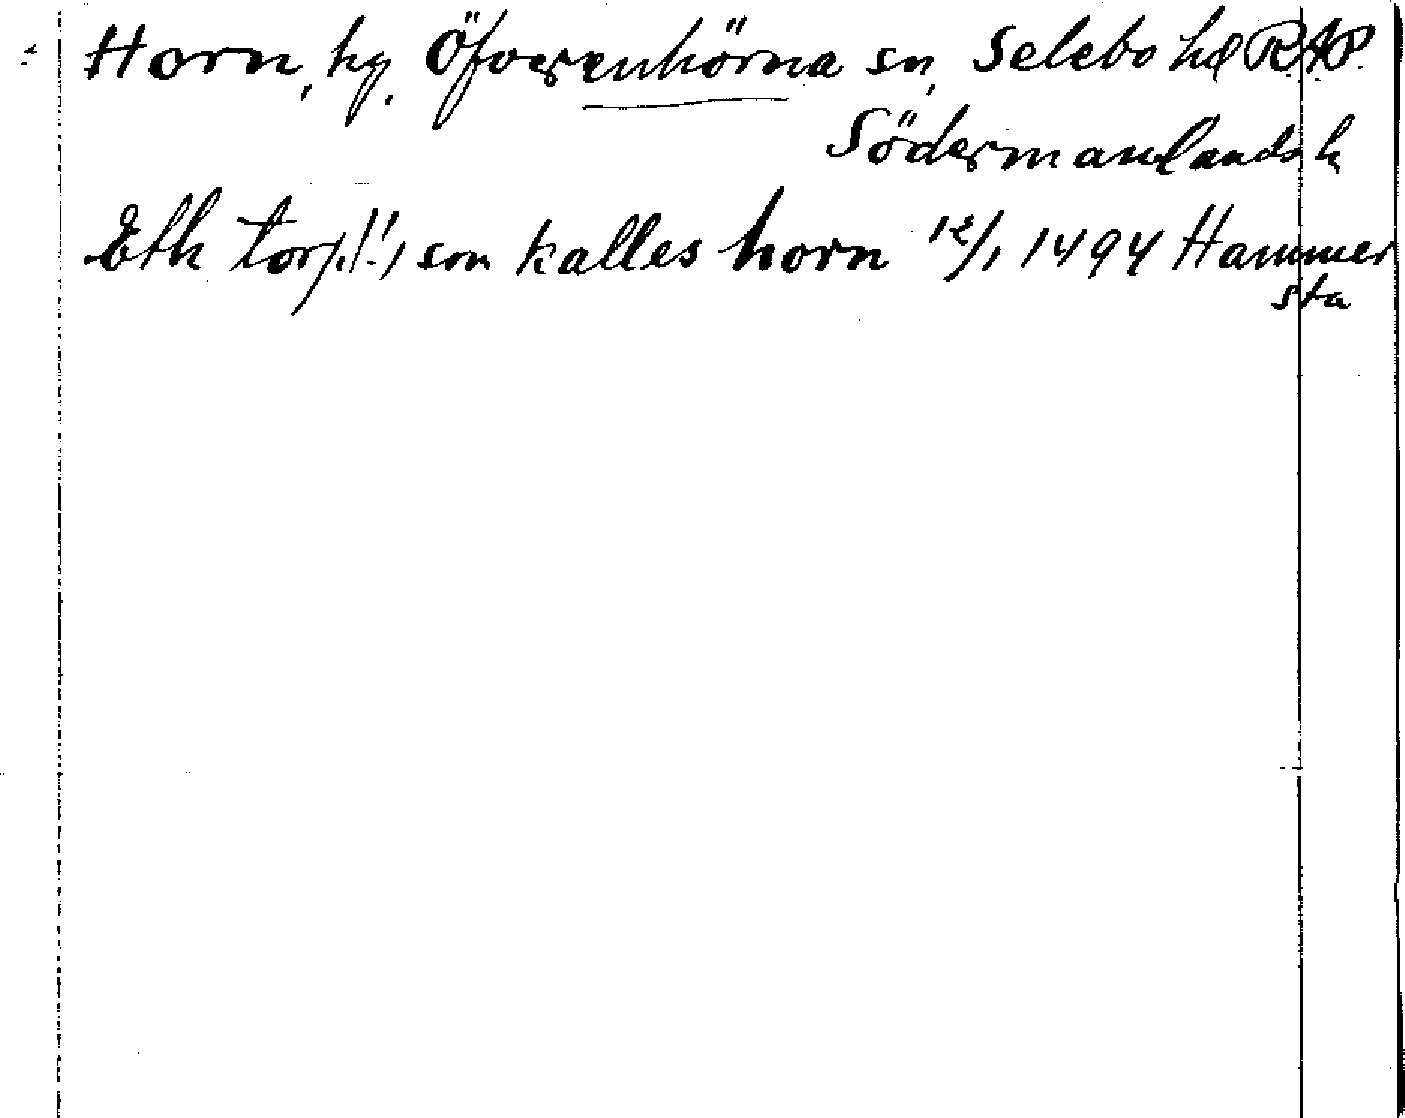 Horn, hg. Öfverenhörna sn, Selebo hd R.A.P.
Södermanlands h
Eth torp(!), som kalles horn 12/1 1494 Hammer
sta